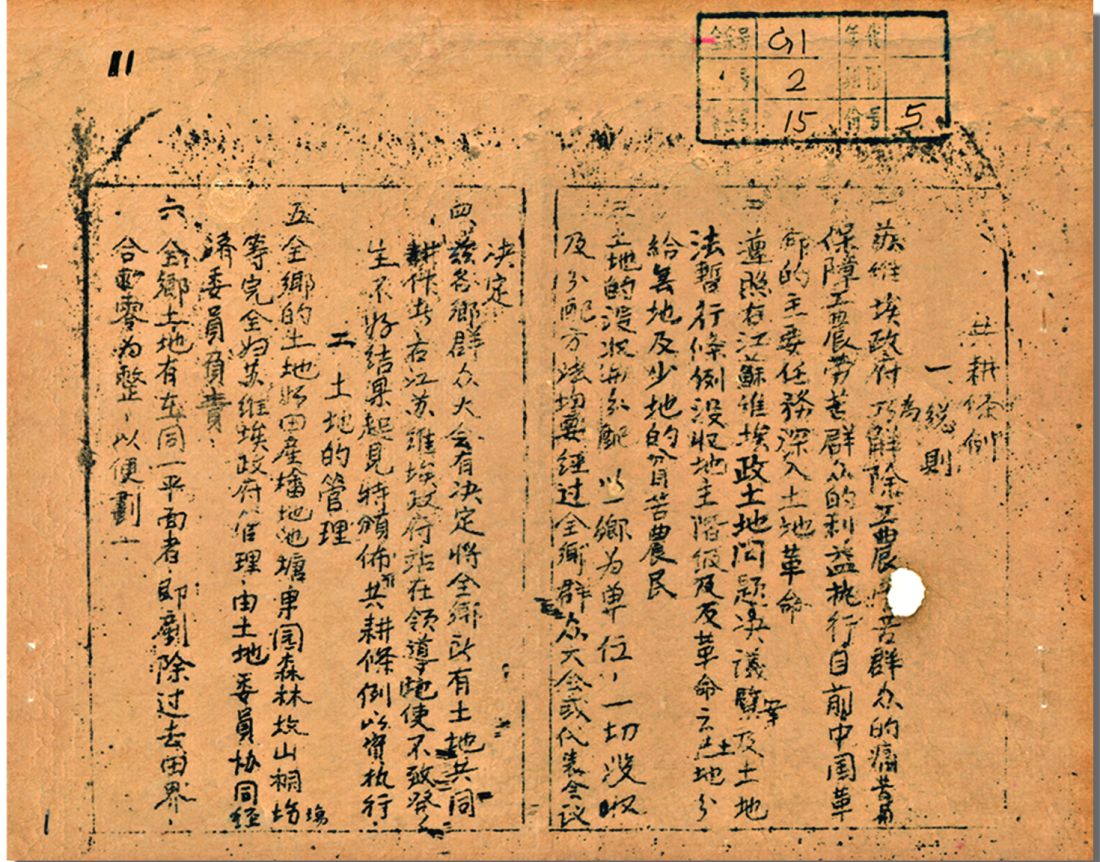 11
全宗号 G1 年代
号 2
15 件号 5
共耕条例
一、总则
一 苏维埃政府为解除工農劳苦群众的痛苦
保障工農劳苦群众的利益执行目前中国革
命的主要任務深入土地革命
二 遵照右江蘇维埃政土地问题决議案及土地
法暫行條例没収地主階级及反革命土地分
给無地及少地的贫苦農民
三 土地的没収与分配以一鄉为单位,一切没収
及分配方法均要经过全鄉群众大会或代表会议
决定
四 兹各鄉群众大会有决定将全鄉所有土地共同
耕作 右江苏维埃政府站在领導地使不致發
生不好结果起见特頒佈共耕條例以資执行.
二 土地的管理
五 全鄉的土地如田産墦地池塘果园森林坟山桐塲
等完全归苏维埃政府管理,由土地委員协同经
济委員負責.
六 全鄉土地有在同一平面者即剷除过去田界.
合零为整,以便劃一
1